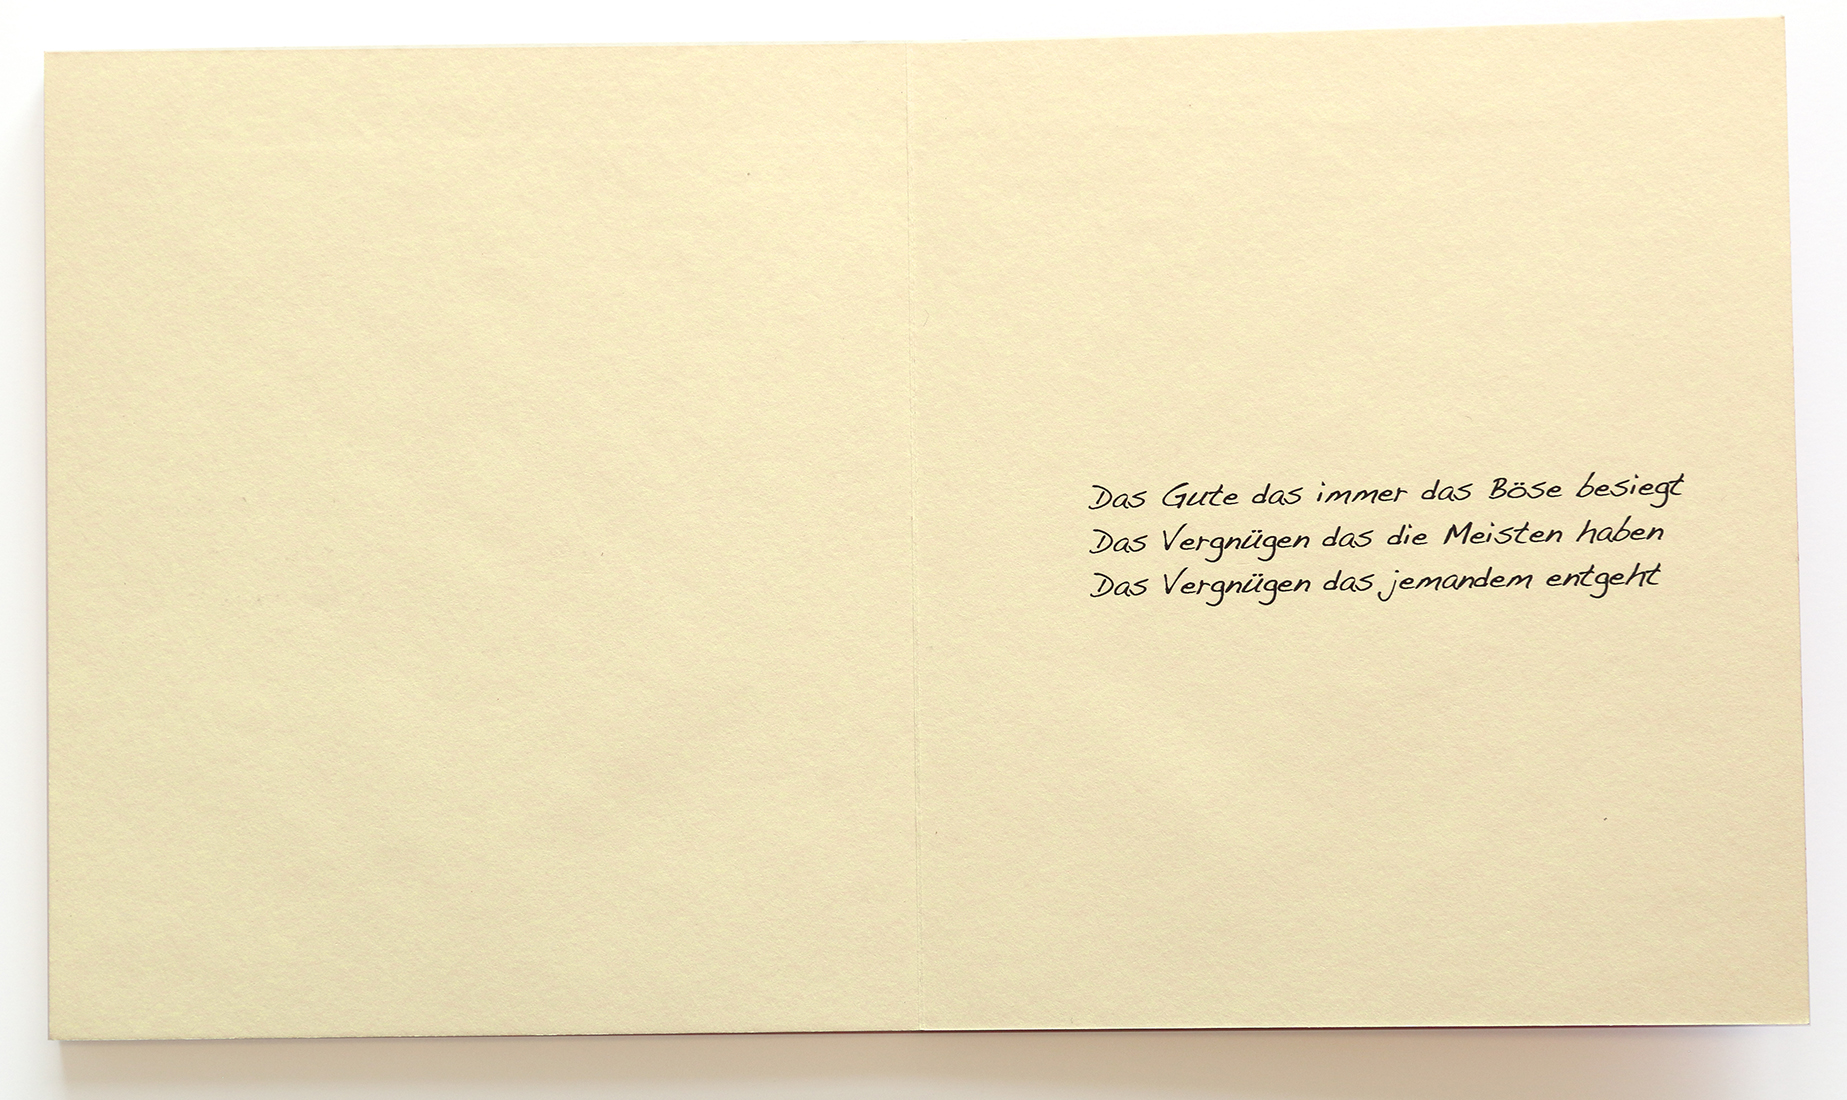 Das Gute das immer das Böse besiegt
Das Vergnügen das die Meisten haben
Das Vergnügen das jemandem entgeht